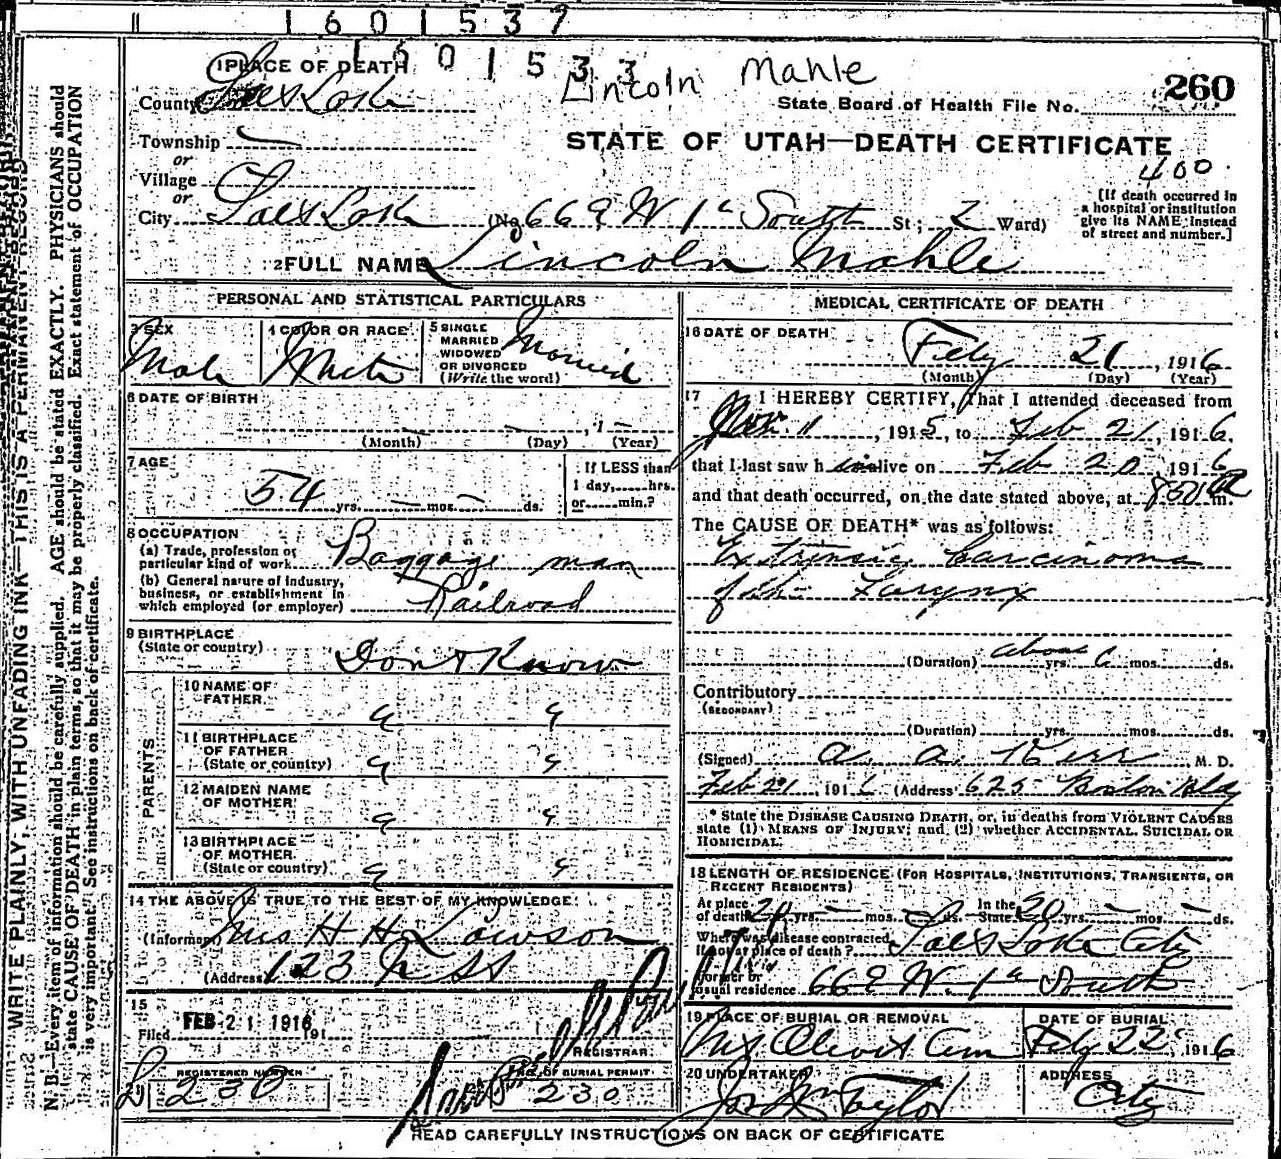 1601537
1601533
Lincoln Mahle
1 PLACE OF DEATH
County Salt Lake
State Board of Health File No. 260
Township —
STATE OF UTAH—DEATH CERTIFICATE
or
Village
400
or
City Salt Lake (No. 669 W 1st South St; 2 Ward)
[If death occurred in
a hospital or institution
give its NAME instead
of street and number.]
2 FULL NAME Lincoln Mahle
PERSONAL AND STATISTICAL PARTICULARS
3 SEX
Male
4 COLOR OR RACE
White
5 SINGLE
MARRIED
WIDOWED
OR DIVORCED
(Write the word)
Married
6 DATE OF BIRTH
— — , 1 —
(Month) (Day) (Year)
7 AGE
54 yrs. — mos. — ds.
If LESS than
1 day,......hrs.
or......min.?
8 OCCUPATION
(a) Trade, profession or
particular kind of work Baggage man
(b) General nature of industry,
business, or establishment in
which employed (or employer) Railroad
9 BIRTHPLACE
(State or country) Dont Know
PARENTS
10 NAME OF
FATHER " "
11 BIRTHPLACE
OF FATHER
(State or country) " "
12 MAIDEN NAME
OF MOTHER " "
13 BIRTHPLACE
OF MOTHER
(State or country) " "
14 THE ABOVE IS TRUE TO THE BEST OF MY KNOWLEDGE
(Informant) Mrs H H Lawson
(Address) 123
15
Filed FEB 21 1916 191
REGISTRAR
REGISTERED NUMBER
230
NO. OF BURIAL PERMIT
230
MEDICAL CERTIFICATE OF DEATH
16 DATE OF DEATH
Feby 21, 1916
(Month) (Day) (Year)
17 I HEREBY CERTIFY, That I attended deceased from
Nov. 11, 1915, to Feb 21, 1916,
that I last saw h im alive on Feb 20, 1916
and that death occurred, on the date stated above, at 8 50 a m.
The CAUSE OF DEATH* was as follows:
Extrinsic Carcinoma
of the Larynx
(Duration) about yrs. 6 mos. ds.
Contributory
(SECONDARY)
(Duration) yrs. mos. ds.
(Signed) A. A. Kerr M. D.
Feb 21, 1916 (Address) 625 Boston Bldg
* State the DISEASE CAUSING DEATH, or, in deaths from VIOLENT CAUSES
state (1) MEANS OF INJURY; and (2) whether ACCIDENTAL, SUICIDAL OR
HOMICIDAL.
18 LENGTH OF RESIDENCE (FOR HOSPITALS, INSTITUTIONS, TRANSIENTS, OR
RECENT RESIDENTS)
At place
of death 20 yrs. — mos. ds. In the State 20 yrs. — mos. — ds.
Where was disease contracted,
If not at place of death? Salt Lake City
Former or
usual residence 669 W. 1st South
19 PLACE OF BURIAL OR REMOVAL
Mt Olivet Cem
DATE OF BURIAL
Feby 22, 1916
20 UNDERTAKER
Jos Wm Taylor
ADDRESS
City
READ CAREFULLY INSTRUCTIONS ON BACK OF CERTIFICATE
WRITE PLAINLY, WITH UNFADING INK—THIS IS A PERMANENT RECORD
N. B.—Every item of information should be carefully supplied. AGE should be stated EXACTLY. PHYSICIANS should
state CAUSE OF DEATH in plain terms, so that it may be properly classified. Exact statement of OCCUPATION
is very important. See instructions on back of certificate.